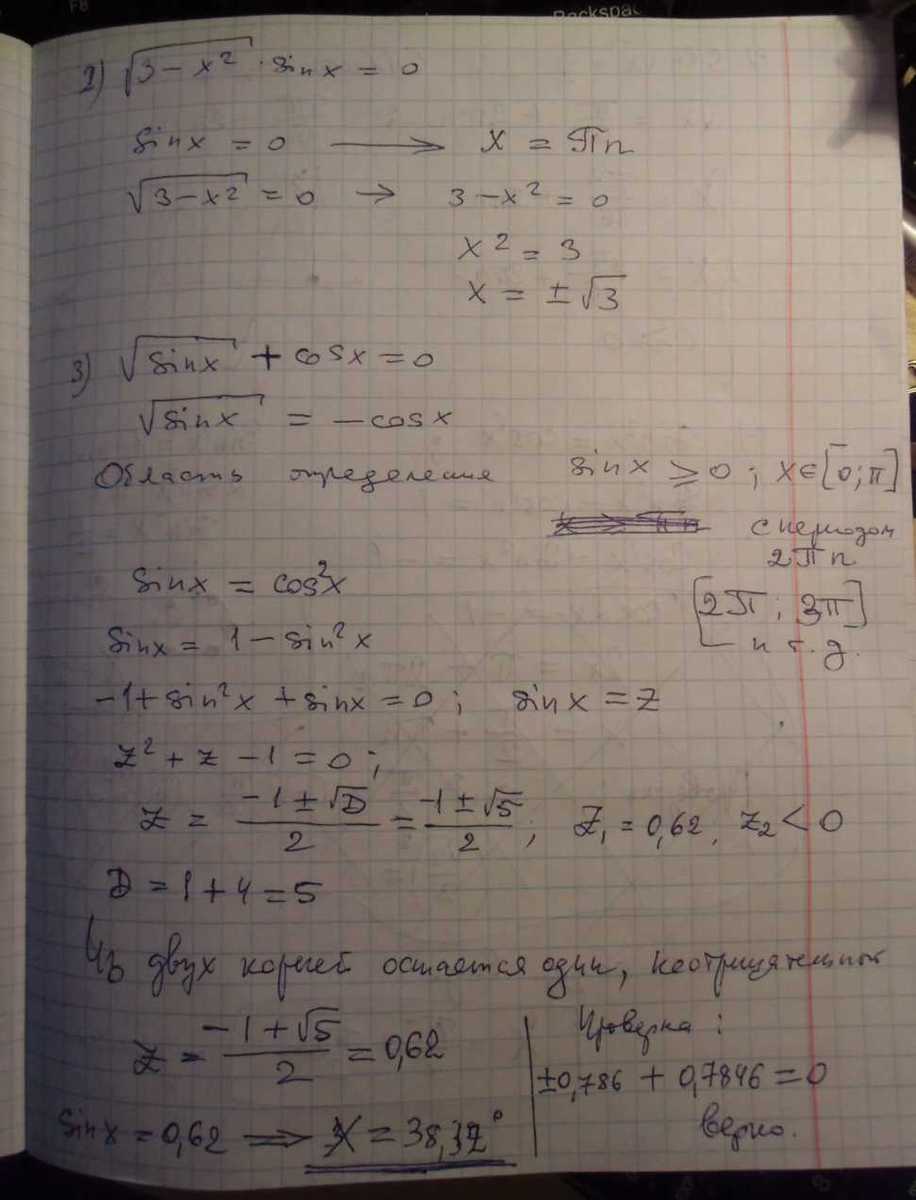 Backspac
2) √(3-x²) · sinx = 0
sinx = 0 → x = πn
√(3-x²) = 0 → 3-x² = 0
x² = 3
x = ±√3
3) √(sinx) + cosx = 0
√(sinx) = -cosx
Область определения sinx ≥ 0; x∈[0;π]
с периодом
2πn
sinx = cos²x
[2π; 3π]
sinx = 1 - sin²x
и т.д.
-1 + sin²x + sinx = 0; sinx = z
z² + z - 1 = 0;
z = (-1 ± √D)/2 = (-1 ± √5)/2; z₁ = 0,62, z₂ < 0
D = 1 + 4 = 5
Из двух корней остается один, неотрицательный
z = (-1 + √5)/2 = 0,62
Проверка:
±0,786 + 0,7846 = 0
sinx = 0,62 ⟹ x = 38,32°
верно.